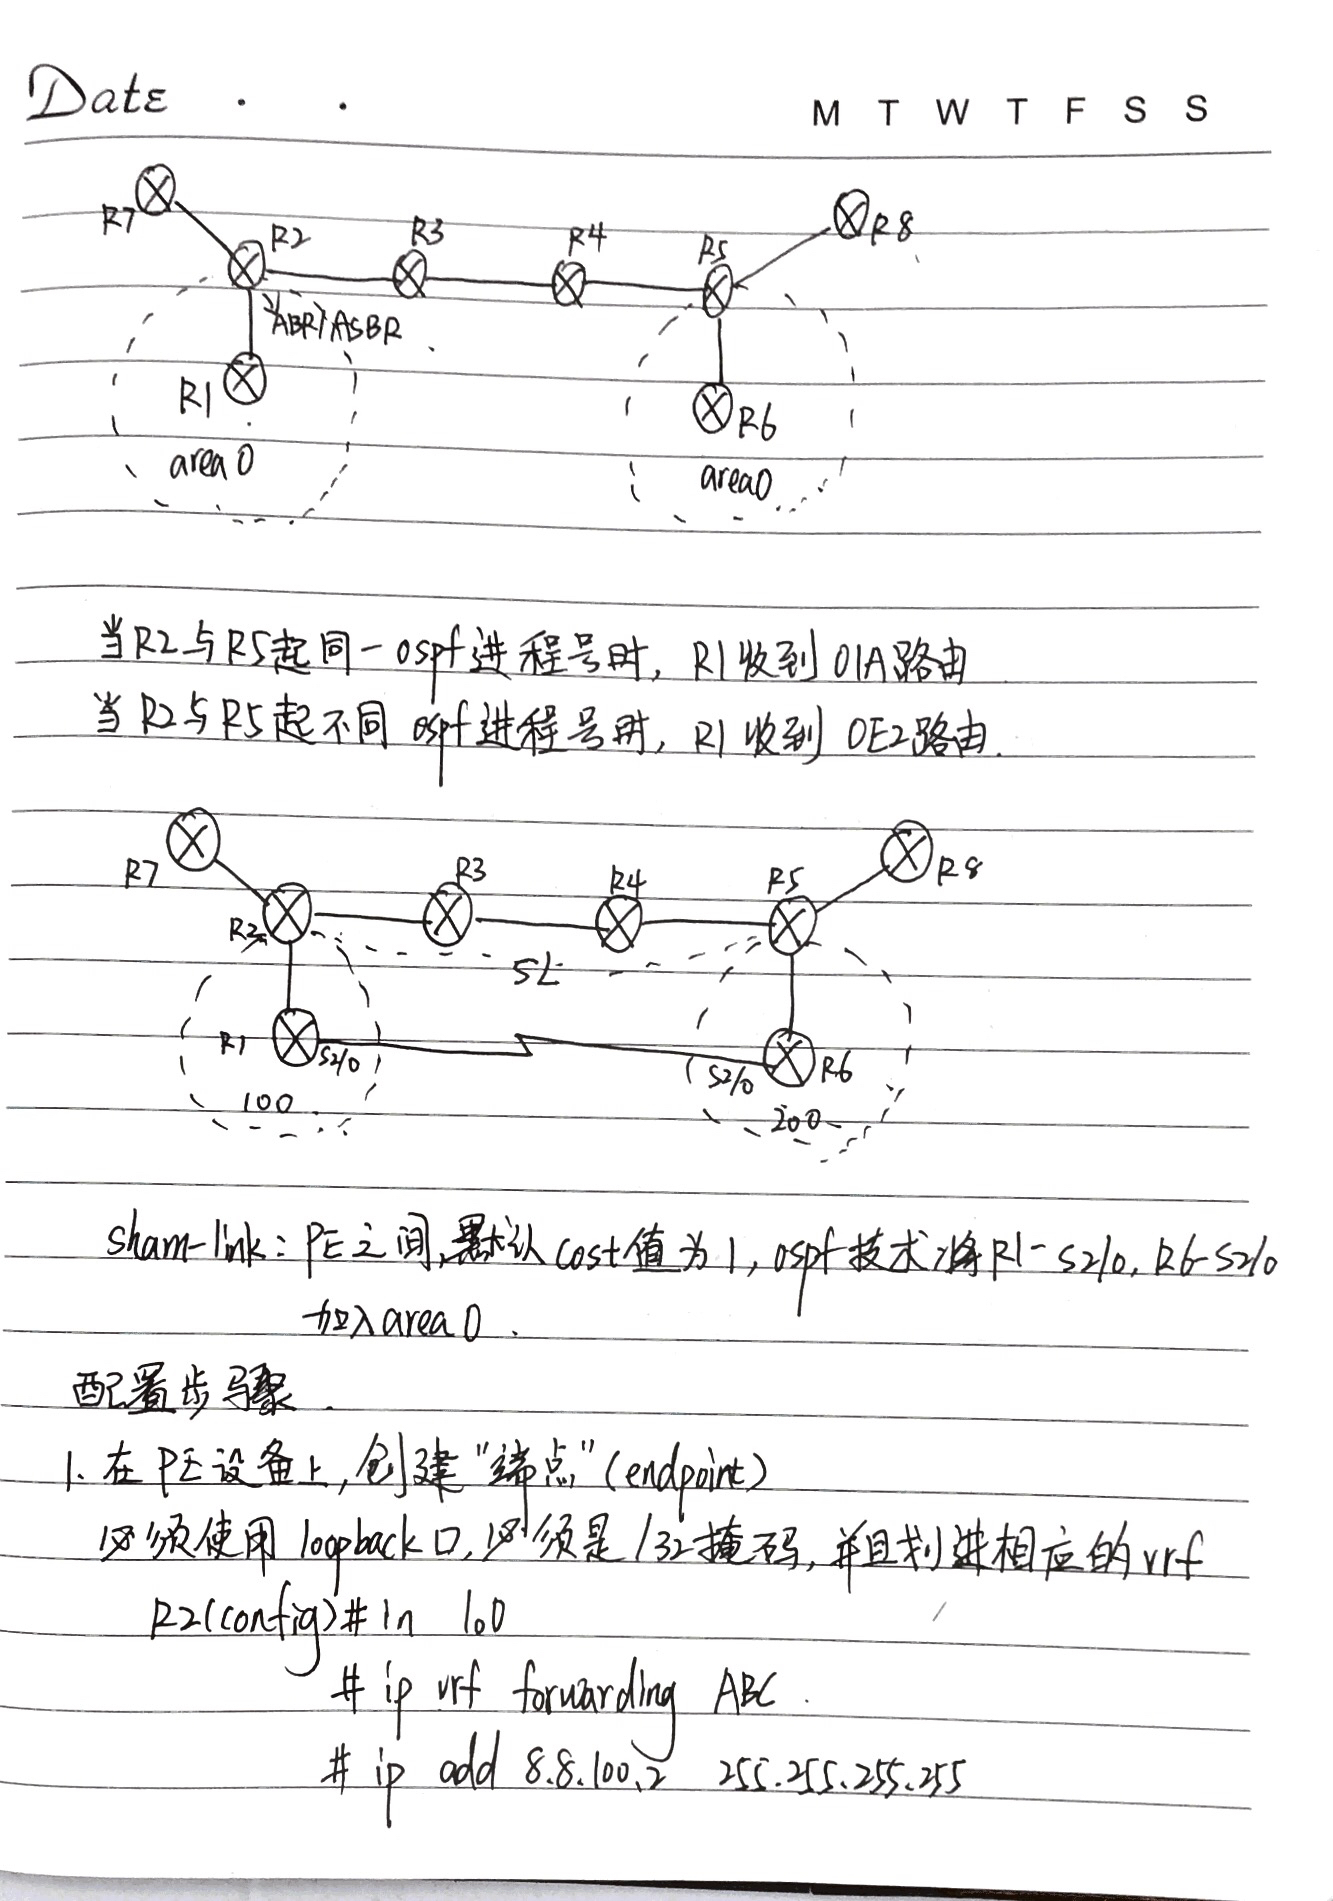 Date . .
M T W T F S S
R7
R8
R2
R3
R4
R5
ABR/ASBR
R1
R6
area 0
area0
当R2与R5起同一ospf进程号时, R1收到OIA路由
当R2与R5起不同ospf进程号时, R1收到OE2路由.
R7
R3
R4
R5
R8
R2
SL
R1
S2/0
S2/0
R6
100
200
sham-link: PE之间,默认cost值为1, ospf技术将R1-S2/0, R6-S2/0
加入area 0.
配置步骤.
1. 在PE设备上,创建“端点”(endpoint)
必须使用loopback口,必须是/32掩码,并且划进相应的vrf
R2(config)#in lo0
# ip vrf forwarding ABC.
# ip add 8.8.100.2 255.255.255.255